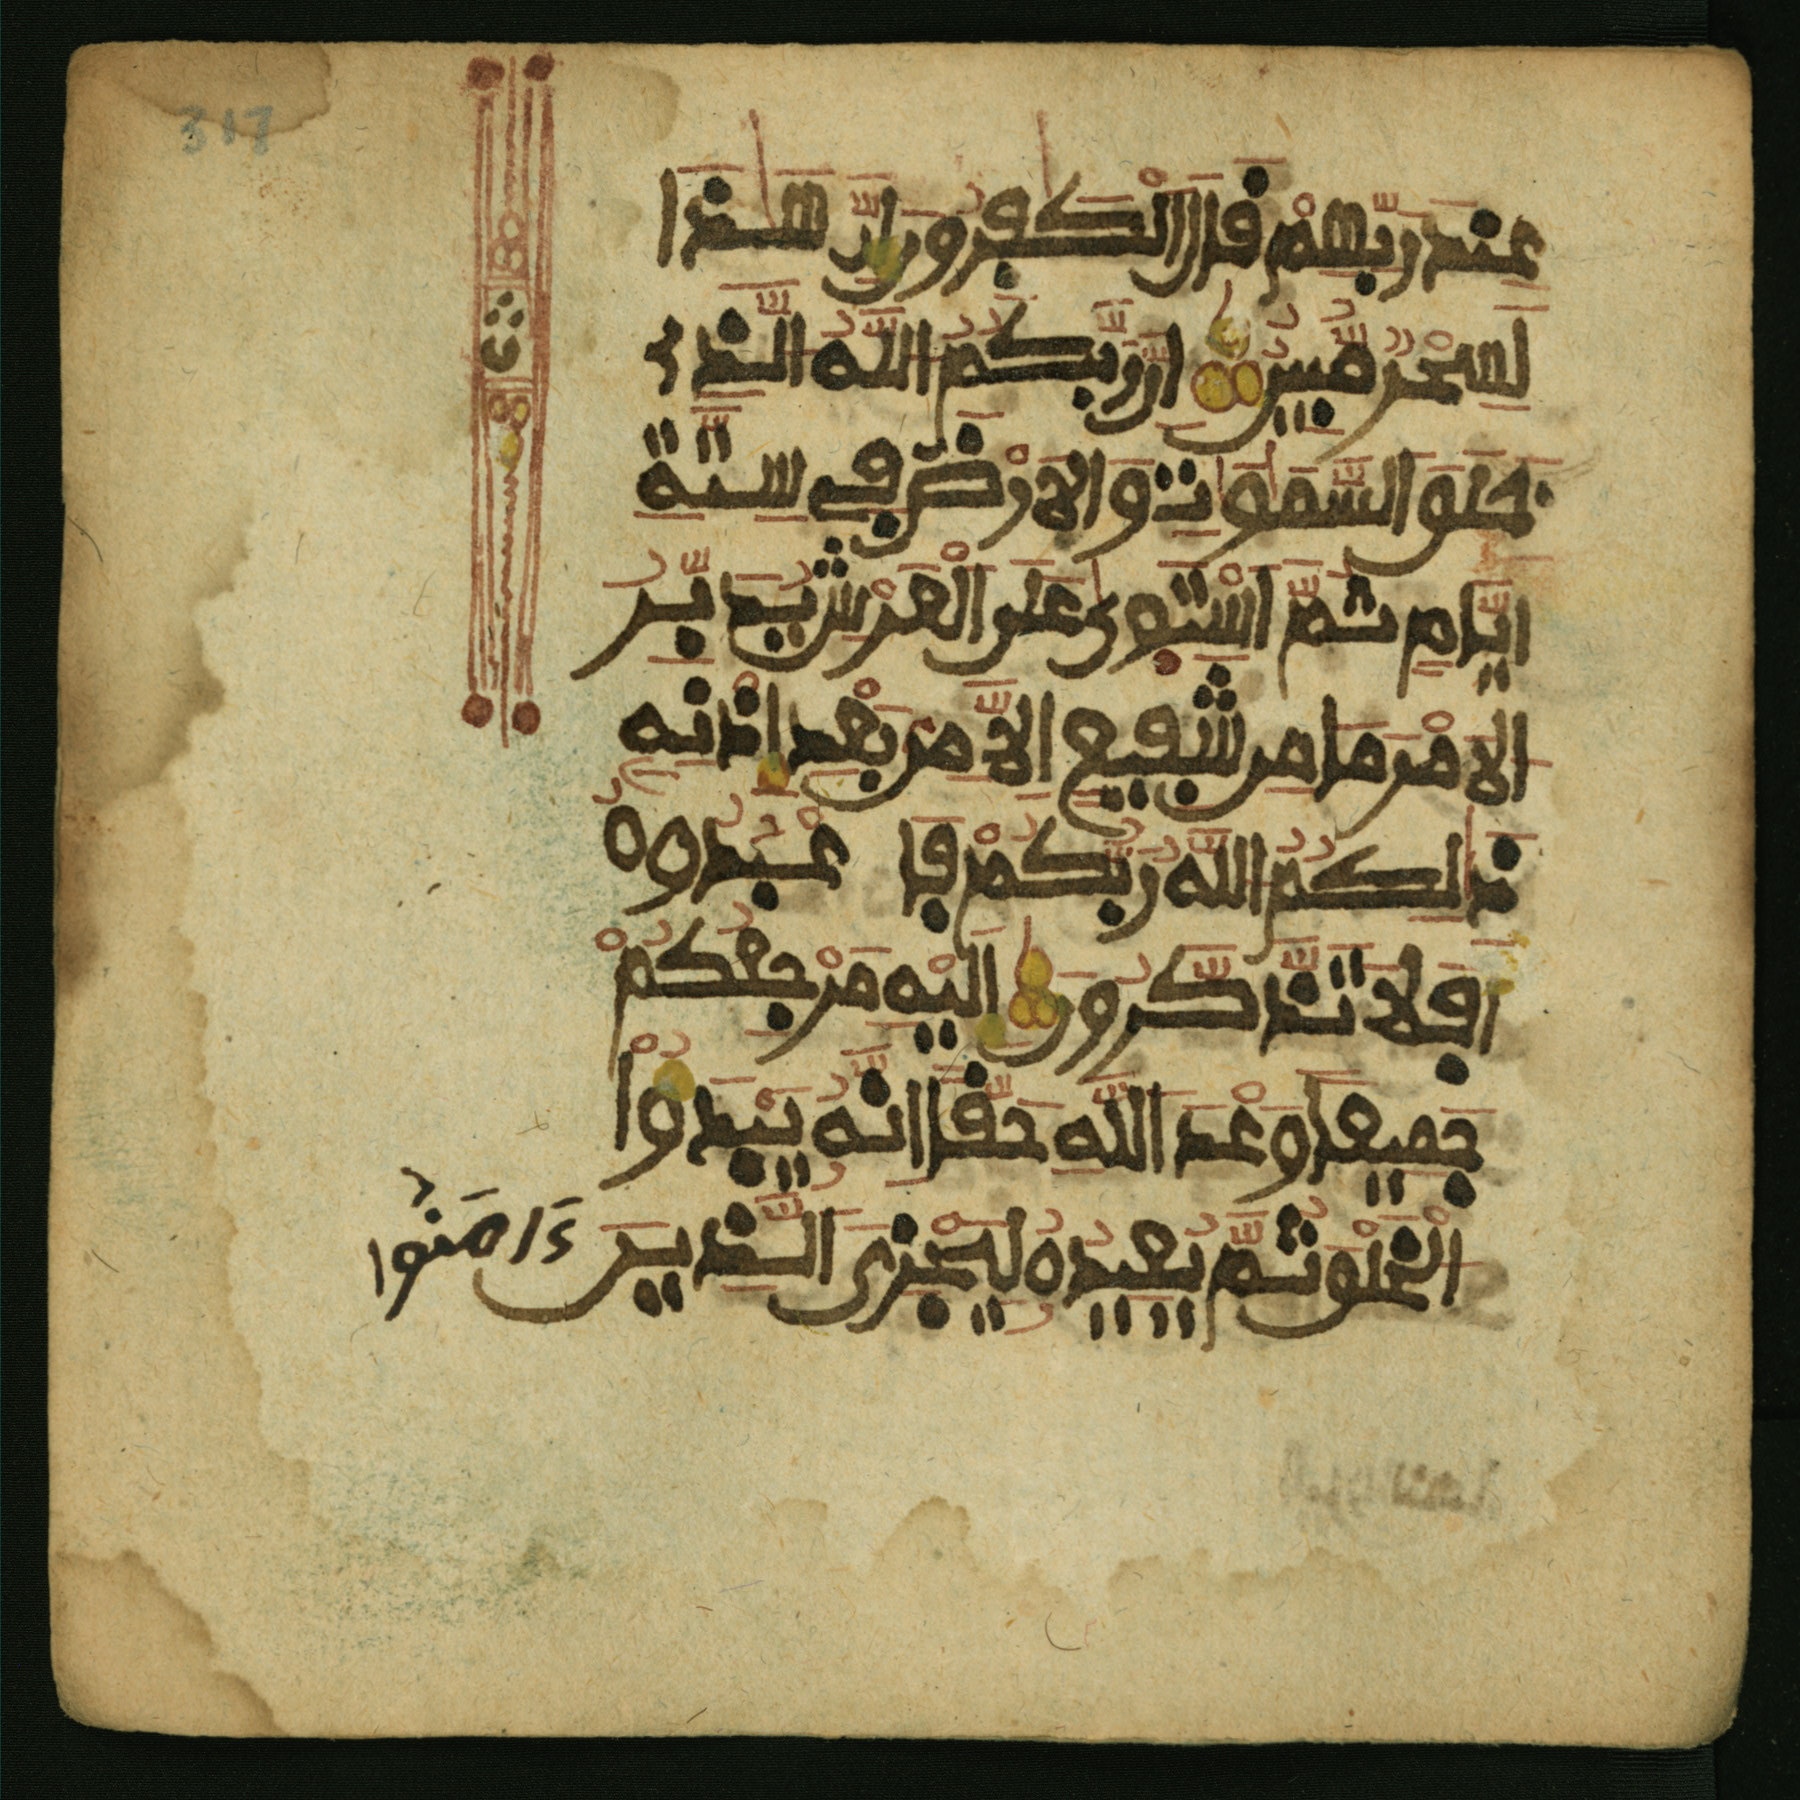 317
عند ربهم قال الكفرون ان هذا
لسحر مبين ان ربكم الله الذي
خلق السموت والارض في ستة
ايام ثم استوى على العرش يدبر
الامر ما من شفيع الا من بعد اذنه
ذلكم الله ربكم فا عبدوه
افلا تذكرون اليه مرجعكم
جميعا وعد الله حقا انه يبدؤا
الخلق ثم يعيده ليجزي الذين
ءامنوا